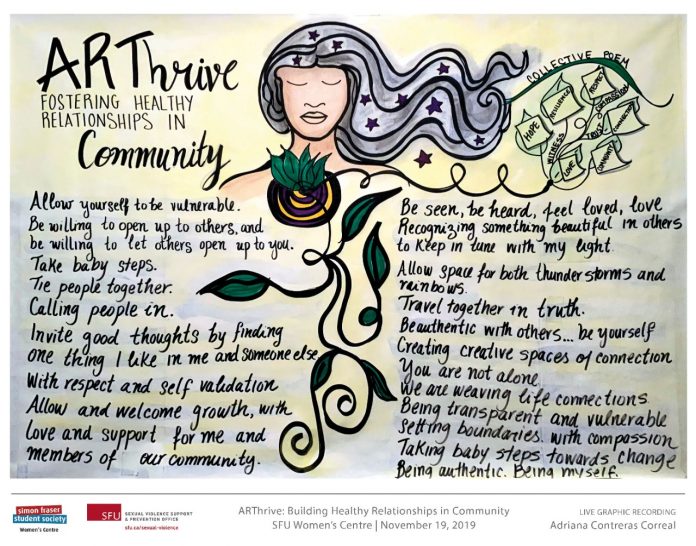 ARThrive
FOSTERING HEALTHY
RELATIONSHIPS IN
Community
Allow yourself to be vulnerable.
Be willing to open up to others, and
be willing to let others open up to you.
Take baby steps.
Tie people together.
Calling people in.
Invite good thoughts by finding
one thing I like in me and someone else
With respect and self validation
Allow and welcome growth, with
love and support for me and
members of our community.
COLLECTIVE POEM
HOPE
RESILIENCE
RESPECT
COMPASSION
WITNESS
TRUST
CONNECTION
LOVE
COMMUNITY
Be seen, be heard, feel loved, love
Recognizing something beautiful in others
to keep in tune with my light.
Allow space for both thunderstorms and
rainbows.
Travel together in truth.
Be authentic with others... be yourself
Creating creative spaces of connection
You are not alone
We are weaving life connections
Being transparent and vulnerable
Setting boundaries with compassion
Taking baby steps towards change
Being authentic. Being myself.
simon fraser
student society
Women's Centre
SFU
SEXUAL VIOLENCE SUPPORT
& PREVENTION OFFICE
sfu.ca/sexual-violence
ARThrive: Building Healthy Relationships in Community
SFU Women's Centre | November 19, 2019
LIVE GRAPHIC RECORDING
Adriana Contreras Correal